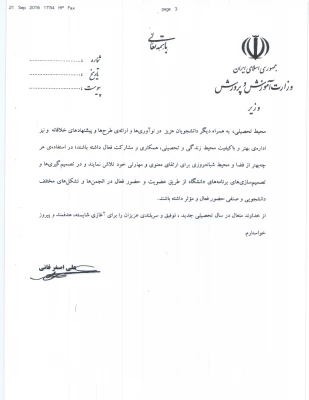 21 Sep 2016 17:54 HP Fax
page 3
باسمه تعالی
جمهوری اسلامی ایران
وزارت آموزش و پرورش
وزیر
شماره :
تاریخ :
پیوست :
محیط تحصیلی، به همراه دیگر دانشجویان عزیز در نوآوری‌ها و ارائه‌ی طرح‌ها و پیشنهادهای خلاقانه و نیز
اداره‌ی بهتر و باکیفیت محیط زندگی و تحصیلی، همکاری و مشارکت فعال داشته باشند؛ در استفاده‌ی هر
چه‌بهتر از فضا و محیط شبانه‌روزی برای ارتقای معنوی و مهارتی خود تلاش نمایند و در تصمیم‌گیری‌ها و
تصمیم‌سازی‌های برنامه‌های دانشگاه از طریق عضویت و حضور فعال در انجمن‌ها و تشکل‌های مختلف
دانشجویی و صنفی حضور فعال و مؤثر داشته باشند.
از خداوند متعال در سال تحصیلی جدید ، توفیق و سربلندی عزیزان را برای آغازی شایسته، هدفمند و پیروز
خواستارم.
علی اصغر فانی